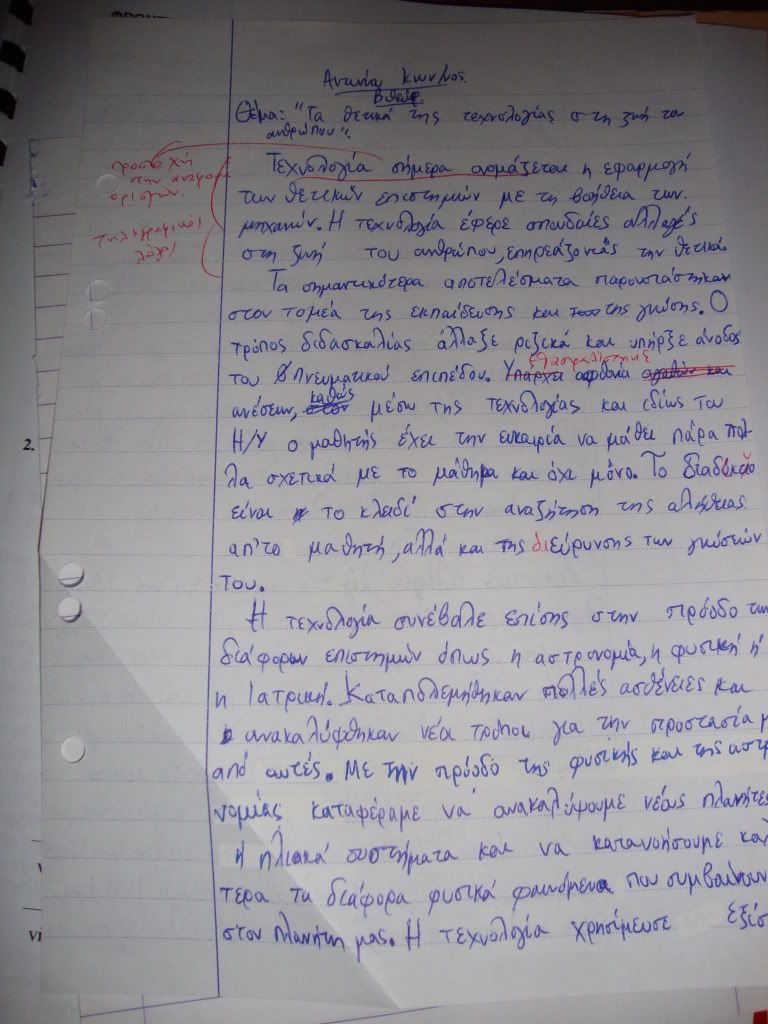 ΦΡΟΝΤ
Αντωνία
Θέμα: "Τα θετικά της τεχνολογίας στη ζωή του
ανθρώπου".
προσοχή
στην αναφορά
ορισμών.
τηλεγραφικός
λόγος
Τεχνολογία σήμερα ονομάζεται η εφαρμογή
των θετικών επιστημών με τη βοήθεια των
μηχανών. Η τεχνολογία έφερε σπουδαίες αλλαγές
στη ζωή του ανθρώπου, επηρεάζοντάς την θετικά.
Τα σημαντικότερα αποτελέσματα παρουσιάστηκαν
στον τομέα της εκπαίδευσης και της γνώσης. Ο
τρόπος διδασκαλίας άλλαξε ριζικά και υπήρξε άνοδος
του πνευματικού επιπέδου. Υπάρχει αφθονία αγαθών και
ανέσεων, καθώς μέσω της τεχνολογίας και ιδίως του
Η/Υ ο μαθητής έχει την ευκαιρία να μάθει πάρα πολ-
2.
λα σχετικά με το μάθημα και όχι μόνο. Το διαδίκτυο
είναι το κλειδί στην αναζήτηση της αλήθειας
απ'το μαθητή, αλλά και της διεύρυνσης των γνώσεών
του.
Η τεχνολογία συνέβαλε επίσης στην πρόοδο των
διάφορων επιστημών όπως η αστρονομία, η φυσική ή
η Ιατρική. Καταπολεμήθηκαν πολλές ασθένειες και
ανακαλύφθηκαν νέοι τρόποι για την προστασία μ
από αυτές. Με την πρόοδο της φυσικής και της αστρ
νομίας καταφέραμε να ανακαλύψουμε νέους πλανήτες
ή ηλιακά συστήματα και να κατανοήσουμε καλ
τερα τα διάφορα φυσικά φαινόμενα που συμβαίνουν
στον πλανήτη μας. Η τεχνολογία χρησίμευσε εξίσ
vi